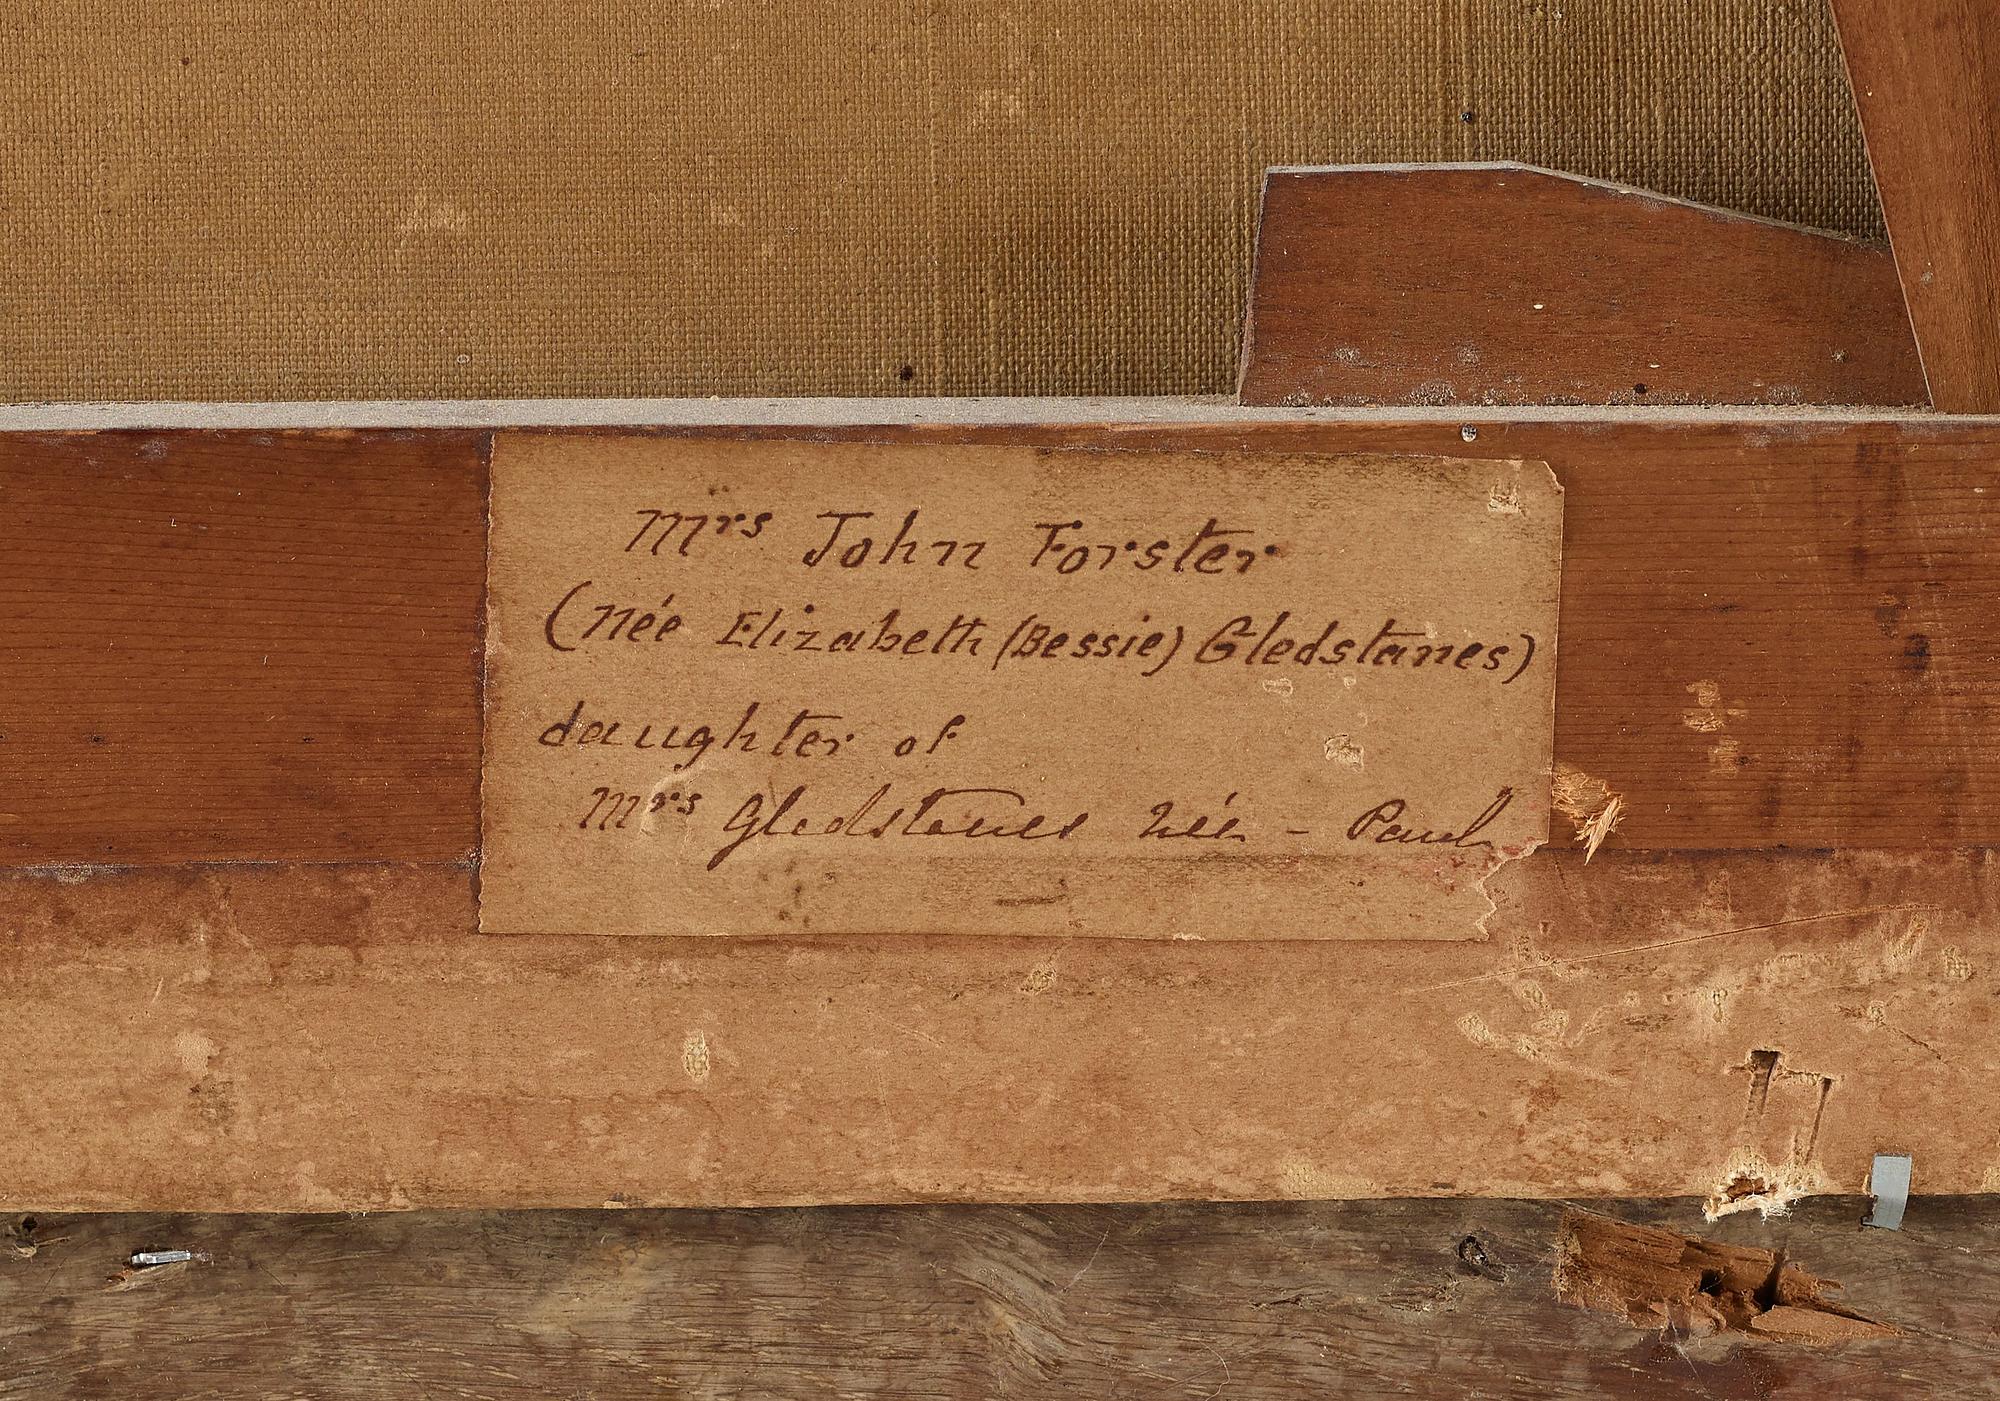 Mrs John Forster
(née Elizabeth (Bessie) Gledstanes)
daughter of
Mrs Gledstanes née - Paul